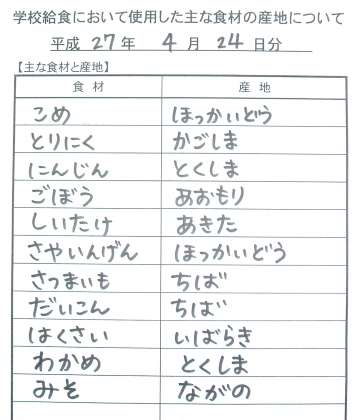 学校給食において使用した主な食材の産地について
平成 27 年 4 月 24 日分
【主な食材と産地】
食材 産地
こめ ほっかいどう
とりにく かごしま
にんじん とくしま
ごぼう あおもり
しいたけ あきた
さやいんげん ほっかいどう
さつまいも ちば
だいこん ちば
はくさい いばらき
わかめ とくしま
みそ ながの